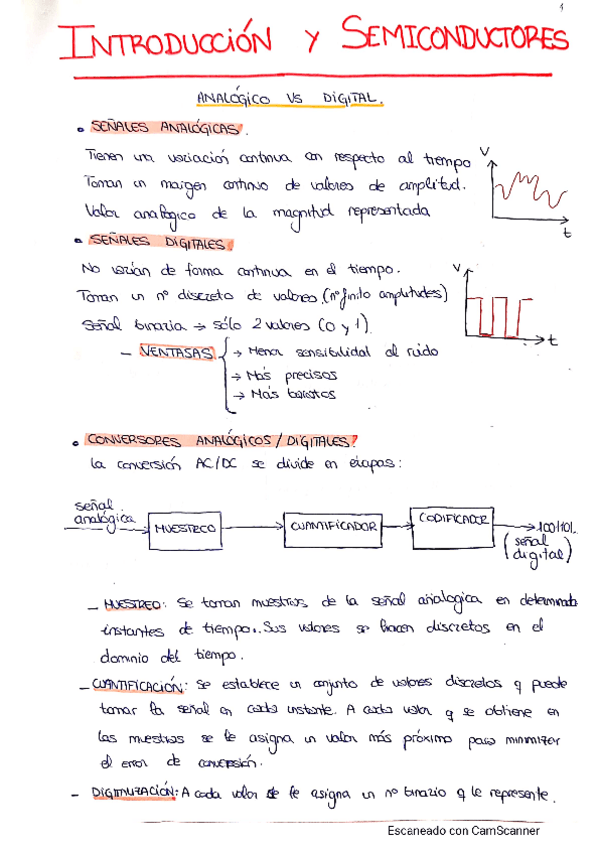 1
INTRODUCCIÓN Y SEMICONDUCTORES
ANALÓGICO VS DIGITAL.
• SEÑALES ANALÓGICAS.
Tienen una variación continua con respecto al tiempo
Toman un margen continuo de valores de amplitud.
Valor analógico de la magnitud representada
V
t
• SEÑALES DIGITALES:
No varían de forma continua en el tiempo.
Toman un nº discreto de valores (nº finito amplitudes)
Señal binaria → sólo 2 valores (0 y 1).
V
t
- VENTAJAS
→ Menor sensibilidad al ruido
→ Más precisos
→ Más baratos
• CONVERSORES ANALÓGICOS/DIGITALES:
La conversión AC/DC se divide en etapas:
señal analógica
MUESTREO
CUANTIFICADOR
CODIFICADOR
→100101.
(señal digital)
- MUESTREO: Se toman muestras de la señal analógica en determinados
instantes de tiempo. Sus valores se hacen discretos en el
dominio del tiempo.
- CUANTIFICACIÓN: Se establece un conjunto de valores discretos q puede
tomar la señal en cada instante. A cada valor q se obtiene en
las muestras se le asigna un valor más próximo para minimizar
el error de conversión.
- DIGITALIZACIÓN: A cada valor se le asigna un nº binario q le represente.
Escaneado con CamScanner